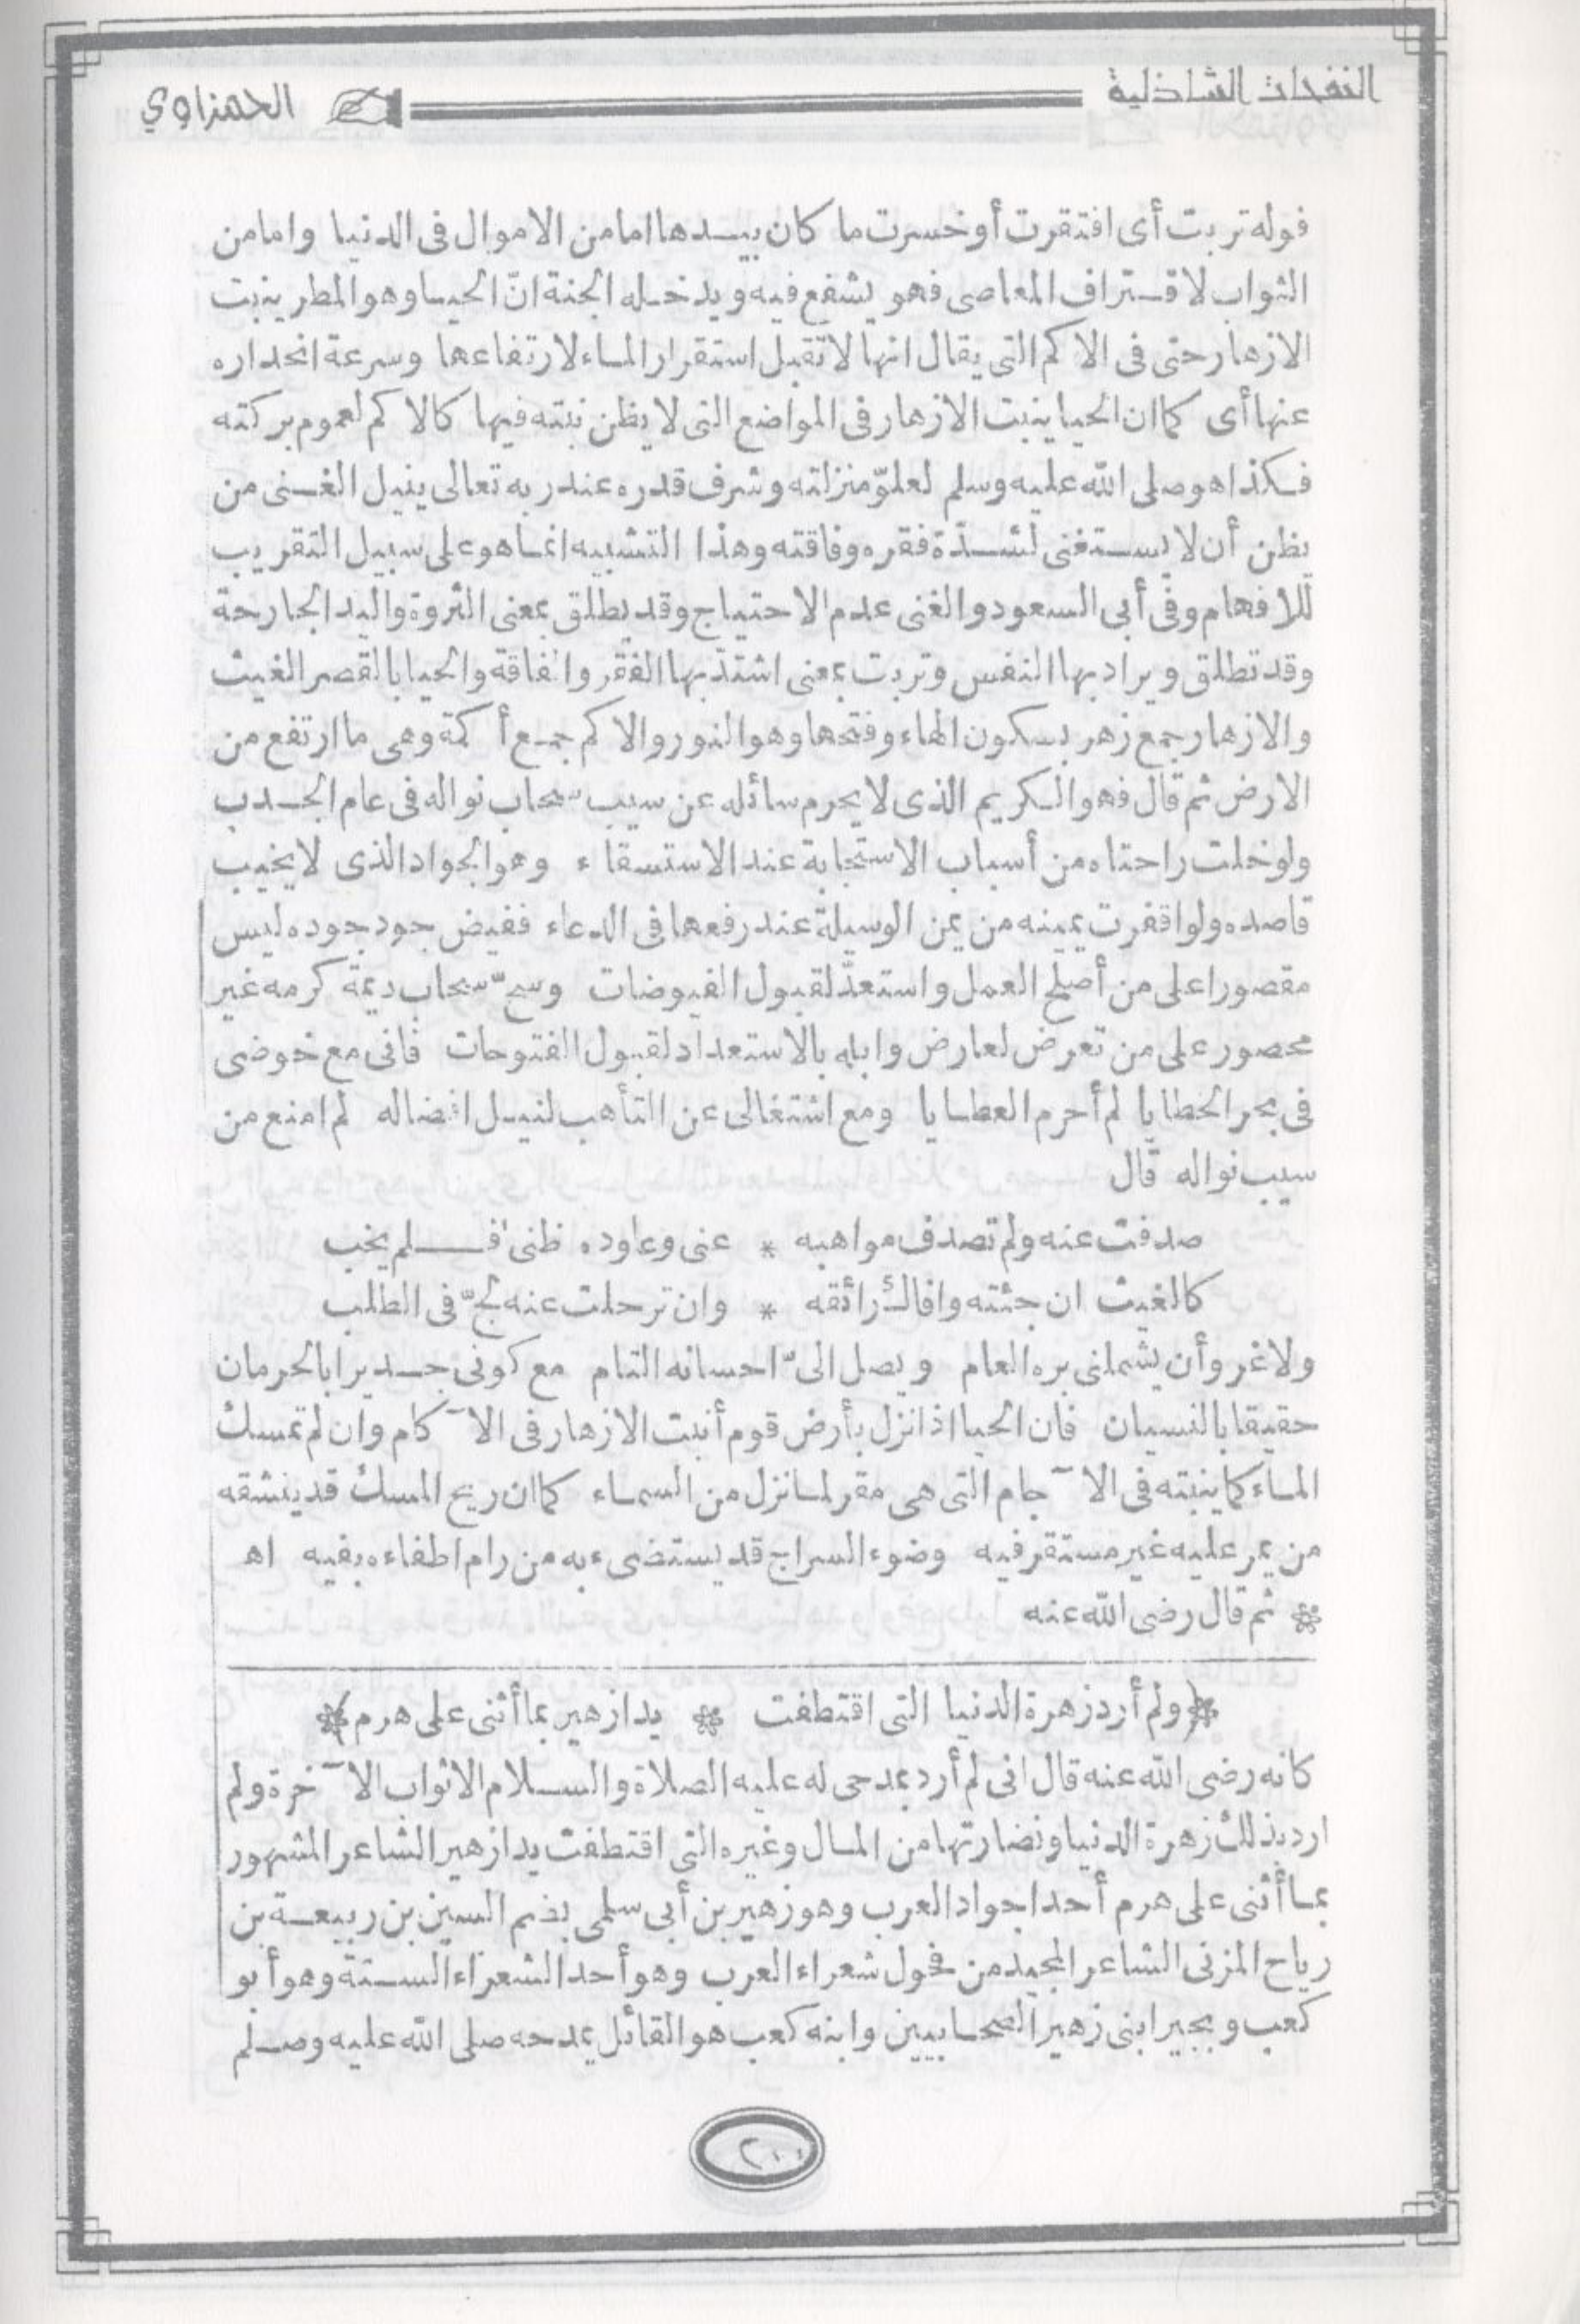 النفحات الشاذلية
الحمزاوي
قوله تربت أى افتقرت أو خسرت ما كان بيدها امامن الاموال فى الدنيا وامامن
الثواب لاقتراف المعاصى فهو يشفع فيه ويدخله الجنة انّ الحيا وهو المطر ينبت
الازهار حتى فى الاكم التى يقال انها لا تقبل استقرار الماء لارتفاعها وسرعة انحداره
عنها أى كما ان الحيا ينبت الازهار فى المواضع التى لا يظن نبته فيها كالاكم لعموم بركته
فكذا هو صلى الله عليه وسلم لعلوّ منزلته وشرف قدره عند ربه تعالى ينيل الغنى من
يظن أن لا يستغنى لشدّة فقره وفاقته وهذا التشبيه انما هو على سبيل التقريب
للافهام وفى أبى السعود والغنى عدم الاحتياج وقد يطلق بمعنى الثروة واليد الجارحة
وقد تطلق ويراد بها النفس وتربت بمعنى اشتدّ بها الفقر والفاقة والحيا بالقصر الغيث
والازهار جمع زهر بسكون الهاء وفتحها وهو النور والاكم جمع أكمة وهى ما ارتفع من
الارض ثم قال فهو الكريم الذى لا يحرم سائله عن سيب سحاب نواله فى عام الجدب
ولو خلت راحتاه من أسباب الاستجابة عند الاستسقاء وهو الجواد الذى لا يخيب
قاصده ولو اقفرت يمينه من يمن الوسيلة عند رفعها فى الدعاء ففيض جود جوده ليس
مقصورا على من أصلح العمل واستعدّ لقبول الفيوضات وسحّ سحاب ديمة كرمه غير
محصور على من تعرض لعارض وابله بالاستعداد لقبول الفتوحات فانى مع خوضى
فى بحر الخطايا لم أحرم العطايا ومع اشتغالى عن التأهب لنيل افضاله لم امنع من
سيب نواله قال
صدفت عنه ولم تصدف مواهبه * عنى وعاوده ظنى فلم يخب
كالغيث ان جئته وافاك رائقه * وان ترحلت عنه لجّ فى الطلب
ولا غرو أن يشملنى بره العام ويصل الىّ احسانه التام مع كونى جديرا بالحرمان
حقيقا بالنسيان فان الحيا اذا نزل بأرض قوم أنبت الازهار فى الآكام وان لم تمسك
الماء كما ينبته فى الآجام التى هى مقر لما نزل من السماء كما ان ريح المسك قد ينشقه
من يمر عليه غير مستقر فيه وضوء السراج قد يستضىء به من رام اطفاءه بفيه اه
* ثم قال رضى الله عنه
*(ولم أرد زهرة الدنيا التى اقتطفت * يدا زهير بما أثنى على هرم)*
كانه رضى الله عنه قال انى لم أرد بمدحى له عليه الصلاة والسلام الا ثواب الآخرة ولم
ارد بذلك زهرة الدنيا ونضارتها من المال وغيره التى اقتطفت يدا زهير الشاعر المشهور
بما أثنى على هرم أحد اجواد العرب وهو زهير بن أبى سلمى بضم السين بن ربيعة بن
رياح المزنى الشاعر المجيد من فحول شعراء العرب وهو أحد الشعراء الستة وهو أبو
كعب وبجير ابنى زهير الصحابيين وابنه كعب هو القائل يمدحه صلى الله عليه وصلم
٢٠٠